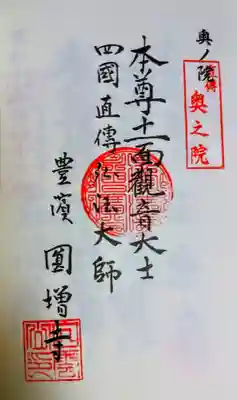 奥ノ院
奥之院
本尊十一面觀音大士
四國直傳弘法大師
豊濱 圓増寺